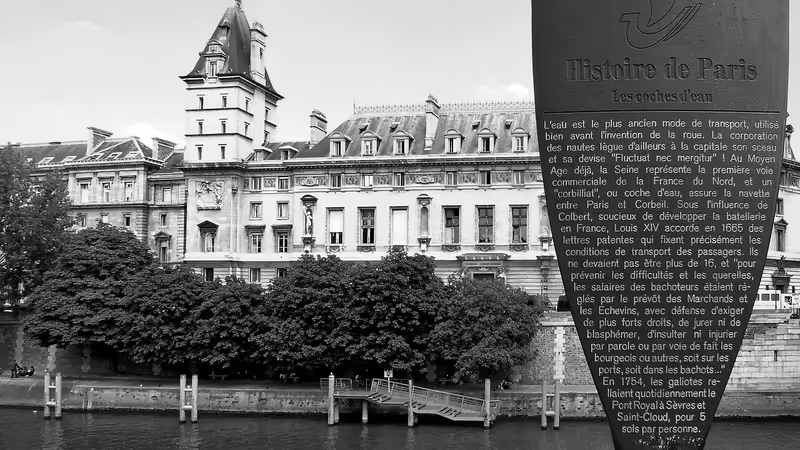 Histoire de Paris
Les coches d'eau
L'eau est le plus ancien mode de transport, utilisé
bien avant l'invention de la roue. La corporation
des nautes lègue d'ailleurs à la capitale son sceau
et sa devise "Fluctuat nec mergitur" ! Au Moyen
Age déjà, la Seine représente la première voie
commerciale de la France du Nord, et un
"corbilliat", ou coche d'eau, assure la navette
entre Paris et Corbeil. Sous l'influence de
Colbert, soucieux de développer la batellerie
en France, Louis XIV accorde en 1665 des
lettres patentes qui fixent précisément les
conditions de transport des passagers. Ils
ne devaient pas être plus de 16, et "pour
prévenir les difficultés et les querelles,
les salaires des bachoteurs étaient ré-
glés par le prévôt des Marchands et
les Echevins, avec défense d'exiger
de plus forts droits, de jurer ni de
blasphémer, d'insulter ni injurier
par parole ou par voie de fait les
bourgeois ou autres, soit sur les
ports, soit dans les bachots..."
En 1754, les galiotes re-
liaient quotidiennement le
Pont Royal à Sèvres et
Saint-Cloud, pour 5
sols par personne.